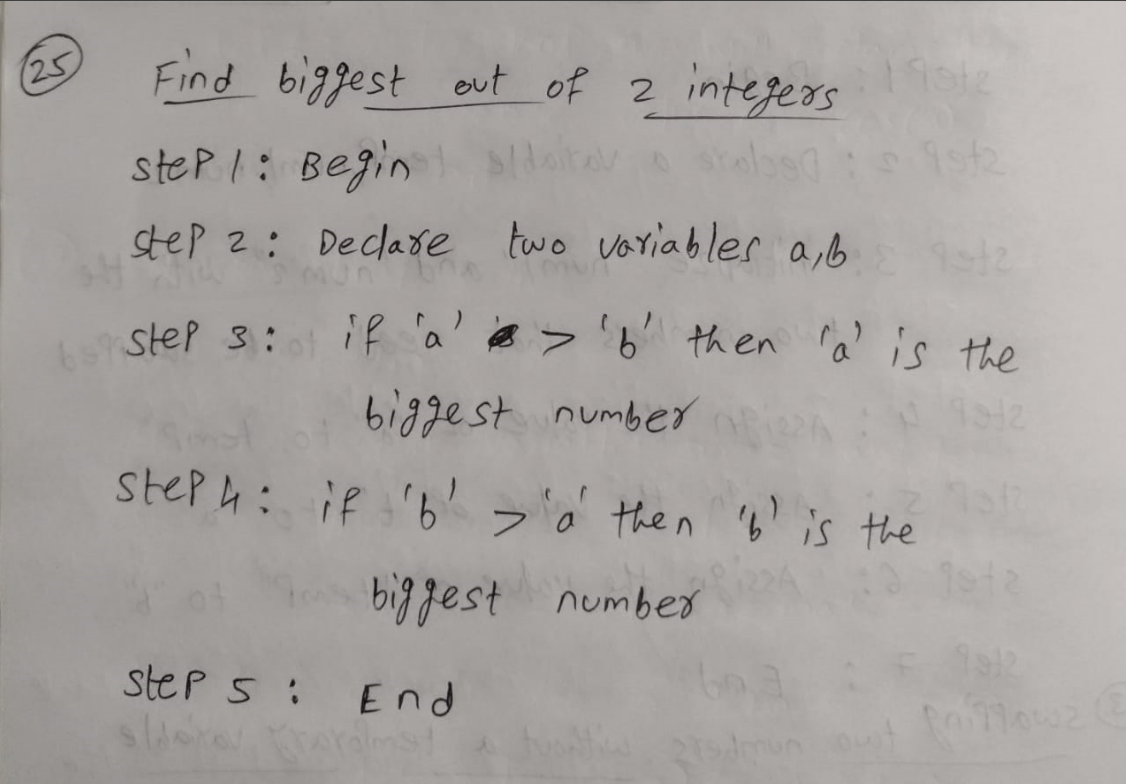 25
Find biggest out of 2 integers
Step 1: Begin
Step 2: Declare two variables a,b
Step 3: if 'a' > 'b' then 'a' is the
biggest number
Step 4: if 'b' > 'a' then 'b' is the
biggest number
Step 5: End